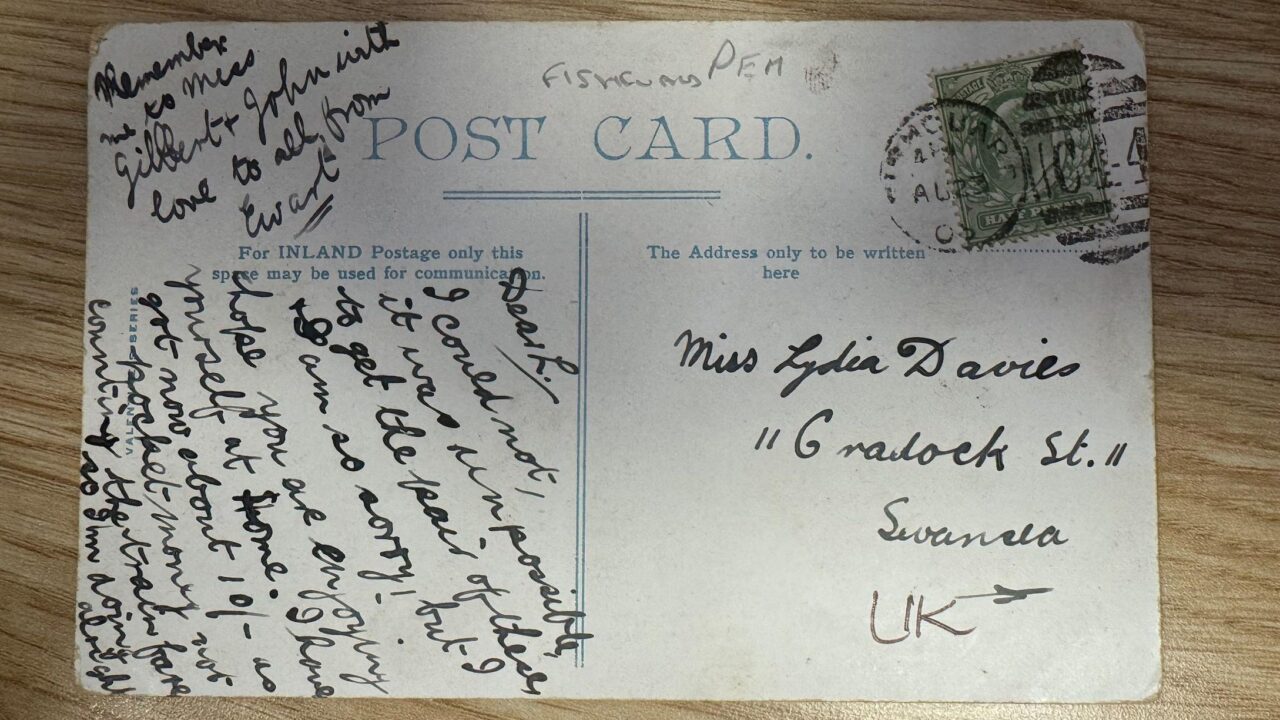 Remember
me to Miss
Gilbert & John with
love to all from
Ewart
FISHGUARD PEM
POST CARD.
For INLAND Postage only this
space may be used for communication.
The Address only to be written
here
AU
HALF
Dear L.
I could not,
it was unpossible,
to get the pair of these
& I am so sorry, but I
hope you are enjoying
yourself at Home. I have
got now about 10/- as
pocket money not
counting the train fare
so I'm doing
alright
VALENTINES SERIES
Miss Lydia Davies
"Cradock St."
Swansea
UK